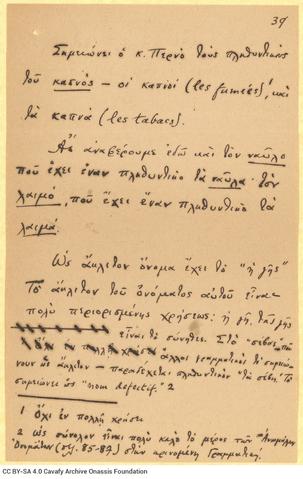 39
Σημειώνει ὁ κ. Περνὸ τοὺς πληθυντικοὺς
τοῦ καπνὸς — οἱ καπνοί (les fumées)¹, καὶ
τὰ καπνὰ (les tabacs).
Ἂς ἀναφέρουμε ἐδῶ καὶ τὸν ναῦλο
ποὺ ἔχει ἕναν πληθυντικὸ τὰ ναῦλα· τὸν
λαιμό, ποὺ ἔχει ἕναν πληθυντικὸ τὰ
λαιμά.
Ὡς ἄκλιτον ὄνομα ἔχει τὸ "ἡ γῆς"
Τὸ ἄκλιτον τοῦ ὀνόματος αὐτοῦ εἶναι
πολὺ περιορισμένης χρήσεως: ἡ γῆ, τῆς γῆς
εἶναι τὸ σύνηθες. Στὸ "σέβας",
ἄλλοι γραμματικοὶ τὸ σημειώ-
νουν ὡς ἄκλιτον — παραδέχεται πληθυντικὸν "τὰ σέβη". Τὸ
σημειώνει ὡς "nom défectif." 2
1 Ὄχι ἐν πολλῇ χρήσει.
2 Ὡς σύνολον εἶναι πολὺ καλὸ τὸ μέρος τῶν "Ἀνωμάλων
Ὀνομάτων" (σελ. 85-87) στὴν κρινομένη Γραμματική.
CC BY-SA 4.0 Cavafy Archive Onassis Foundation